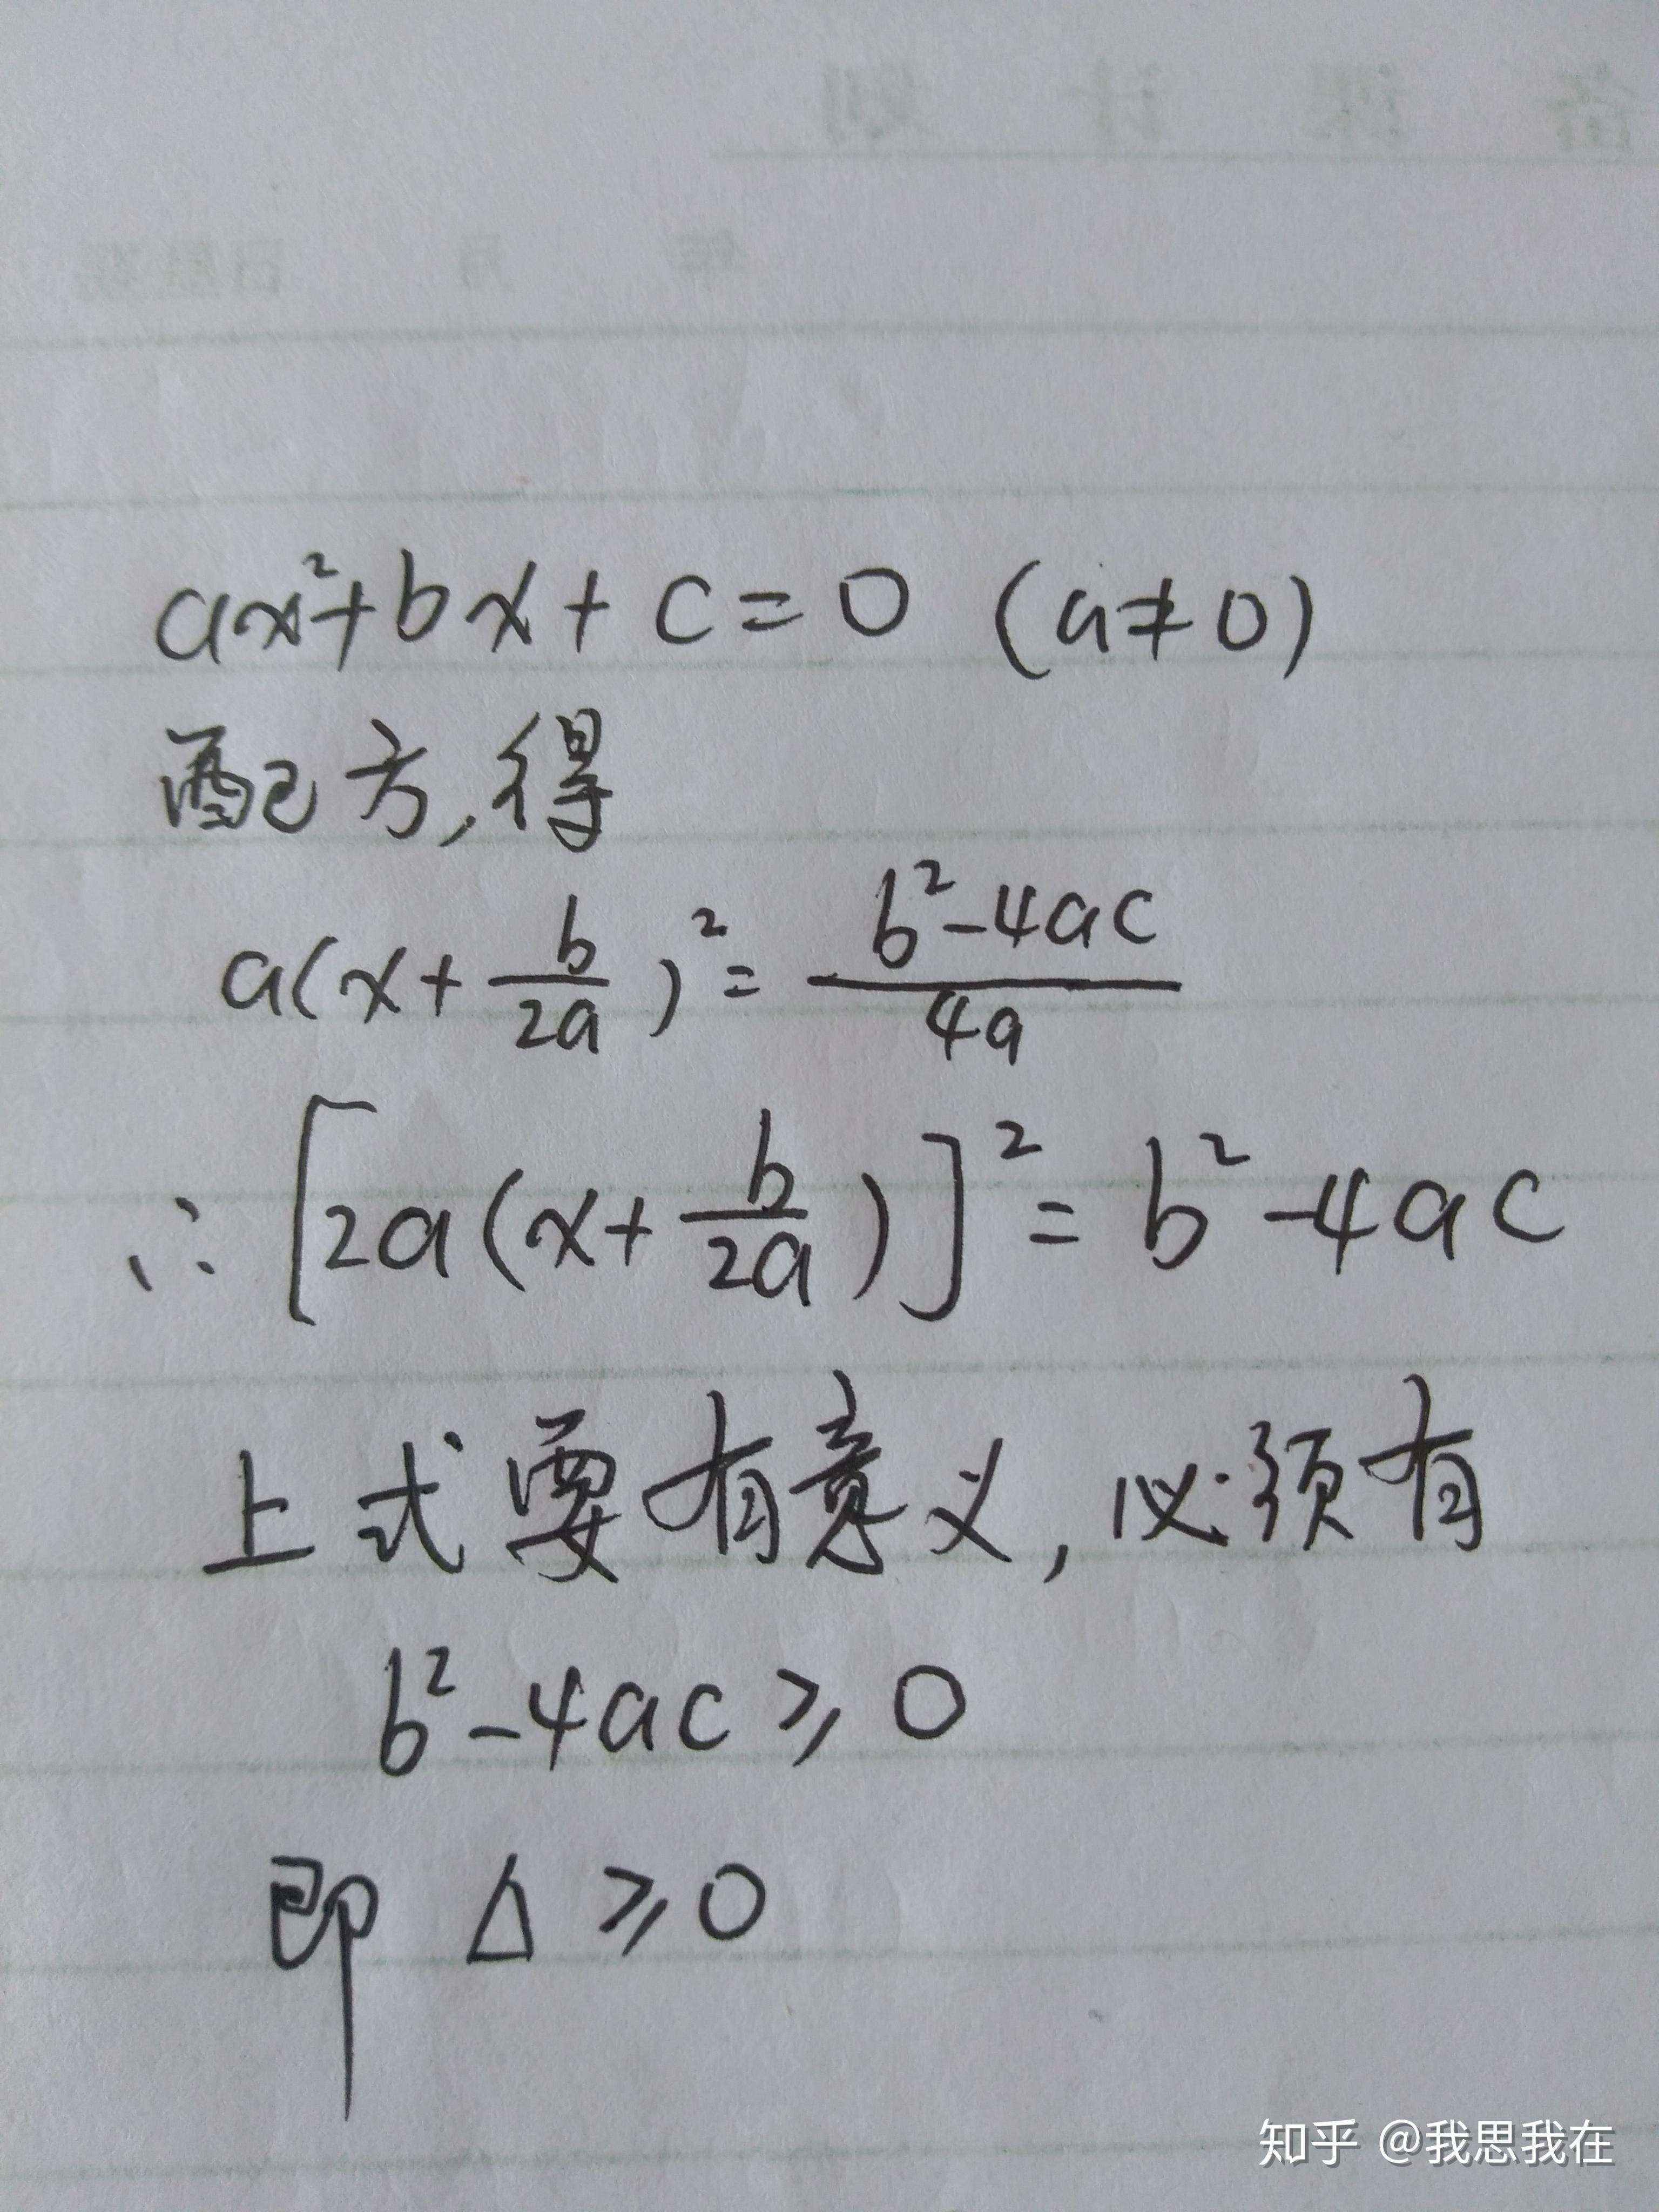 备 课 计 划
年 月 日星期
ax²+bx+c=0 (a≠0)
配方,得
a(x+b/2a)²=b²-4ac/4a
∴[2a(x+b/2a)]²=b²-4ac
上式要有意义,必须有
b²-4ac≥0
即 Δ≥0
知乎 @我思我在